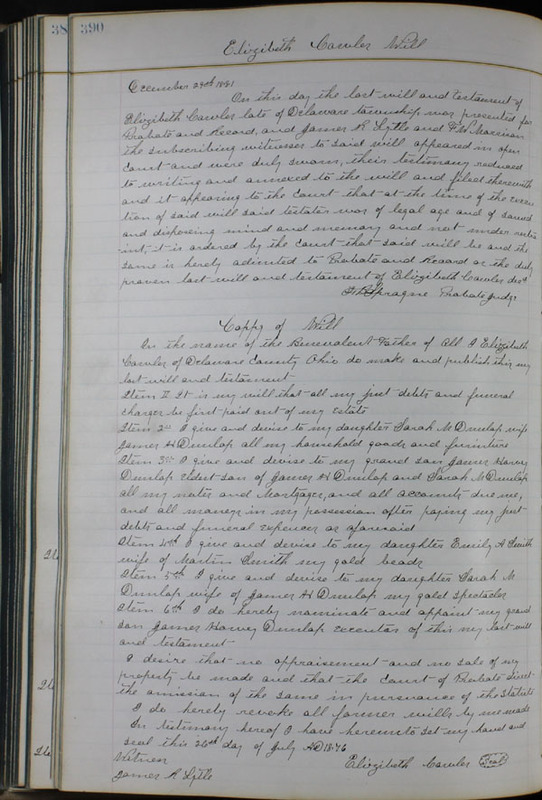 38 390
Elizibeth Cawler Will
December 29th 1881
On this day the last will and testament of
Elizibeth Cawler late of Delaware township was presented for
Probate and Record, and James R Lytle and F M Marriam
the subscribing witnesses to said will appeared in open
court and were duly sworn, their testimony reduced
to writing and annexed to the will and filed therewith
and it appearing to the court that at the time of the execu
tion of said will said testator was of legal age and of sound
and disposing mind and memory and not under restra
int, it is ordered by the court that said will be and the
same is hereby admited to Probate and Record as the duly
proven last will and testament of Elizibeth Cawler decd
F B Sprague Probate Judge
Coppy of Will
In the name of the Benevolent Father of All I Elizibeth
Cawler of Delaware County Ohio do make and publish this my
last will and testament
Item It is my will that all my just debts and funeral
charges be first paid out of my estate
Item 2nd I give and devise to my daughter Sarah M Dunlap wife
James H Dunlap all my household goods and furniture
Item 3rd I give and devise to my grand son James Harvey
Dunlap eldest son of James H Dunlap and Sarah M Dunlap
all my notes and Mortgages, and all accounts due me,
and all moneys in my possession after paying my just
debts and funeral expences as aforesaid
Item 4th I give and devise to my daughter Emily A Smith
wife of Martin Smith my gold beads
Item 5th I give and devise to my daughter Sarah M
Dunlap wife of James H Dunlap my gold spectacles
Item 6th I do hereby nominate and appoint my grand
son James Harvey Dunlap executor of this my last will
and testament
I desire that no appraisement and no sale of my
property be made and that the Court of Probate direct
the omission of the same in pursuance of the Statute
I do hereby revoke all former wills by me made
In testimony hereof I have hereunto set my hand and
seal this 26th day of July AD 1876
Witness Elizibeth Cawler Seal
James R Lytle